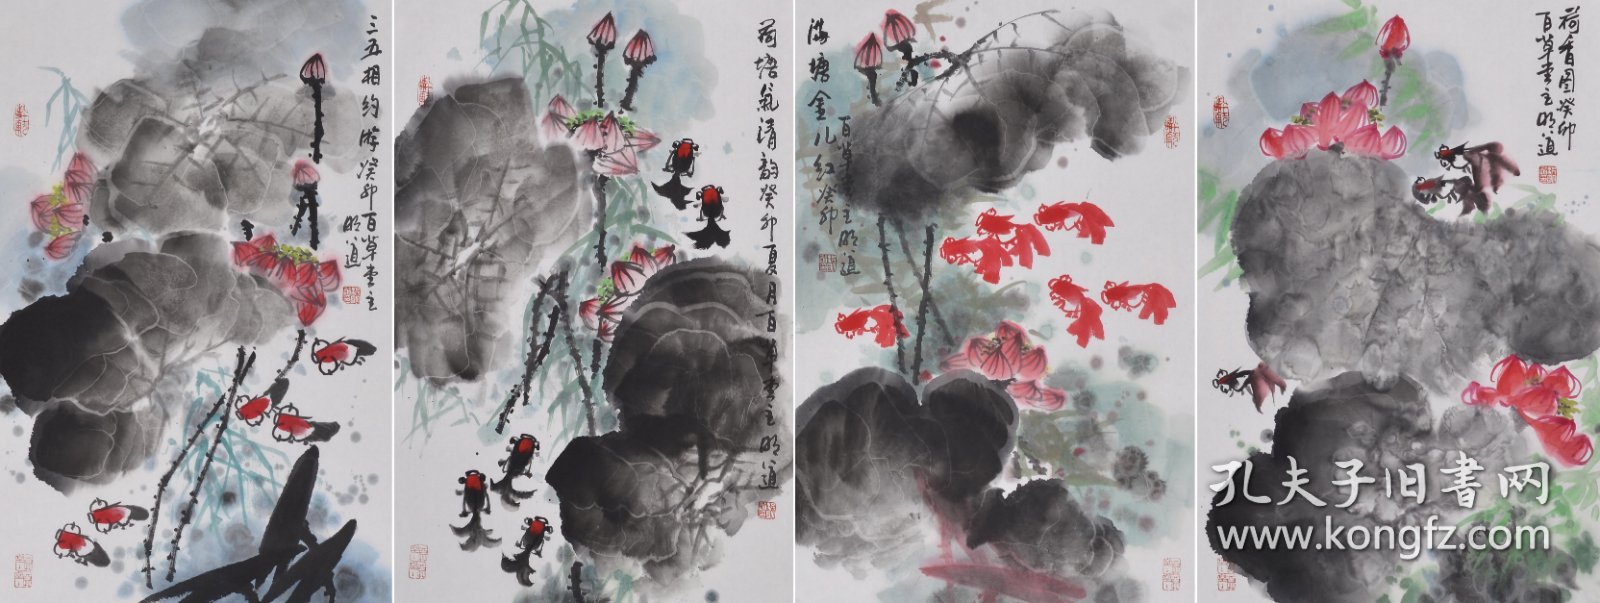 三五相约游癸卯百草堂主
明道
荷塘气清韵癸卯夏月百草堂主明道
满塘金儿红癸卯
百草堂主明道
荷香图癸卯
百草堂主明道
孔夫子旧书网
www.kongfz.com